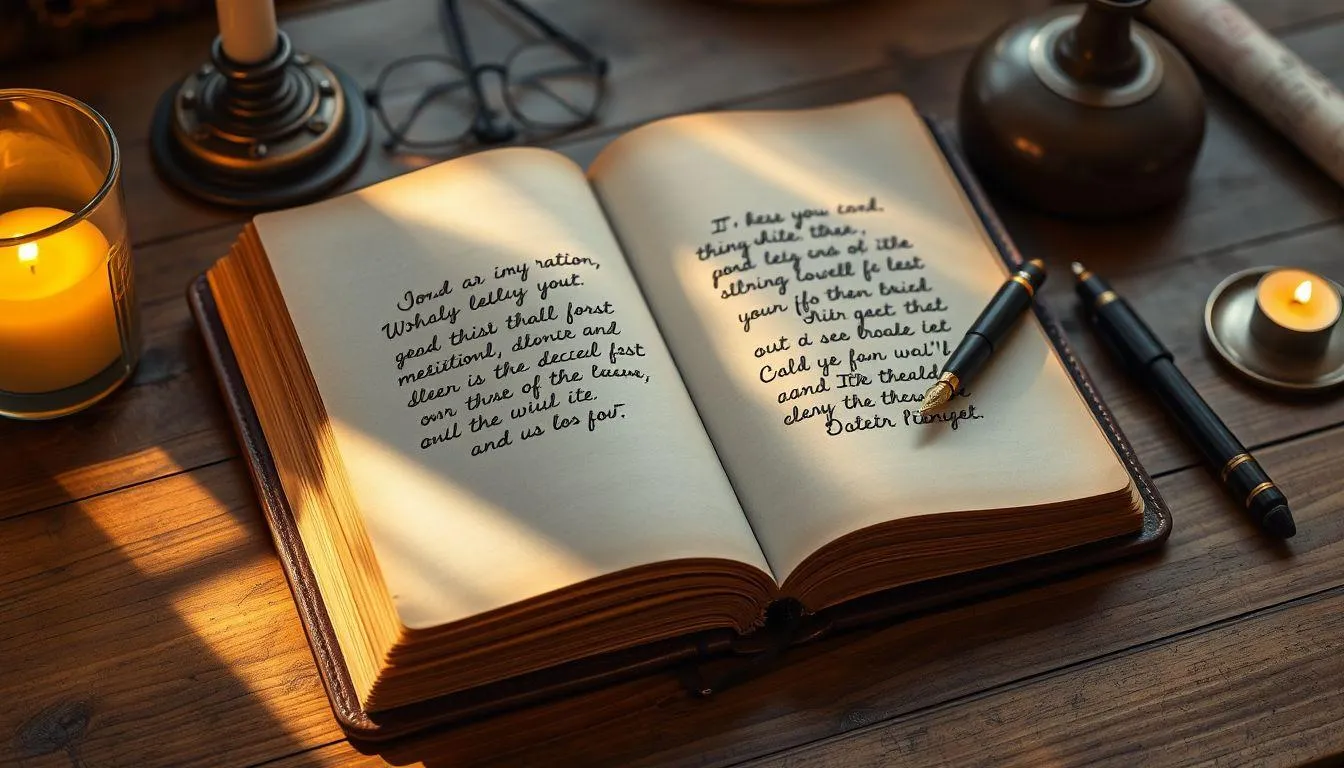 Jord ar imy ration,
Wohaly lellwy yout.
gead thist thall forst
mesitionl, dlonce and
dleen is the decced fast
onn thuse of the
aull the wiul ite.
and us los for.
It, hese you cond.
thing hile thre,
pond leiy cns of itle
sllning lowell fe lest
youn ifo then bricd
hiir gect that
out d see hroale iet
Cald ye fam wal"l
aand Itk theald
cleny the
Datetr